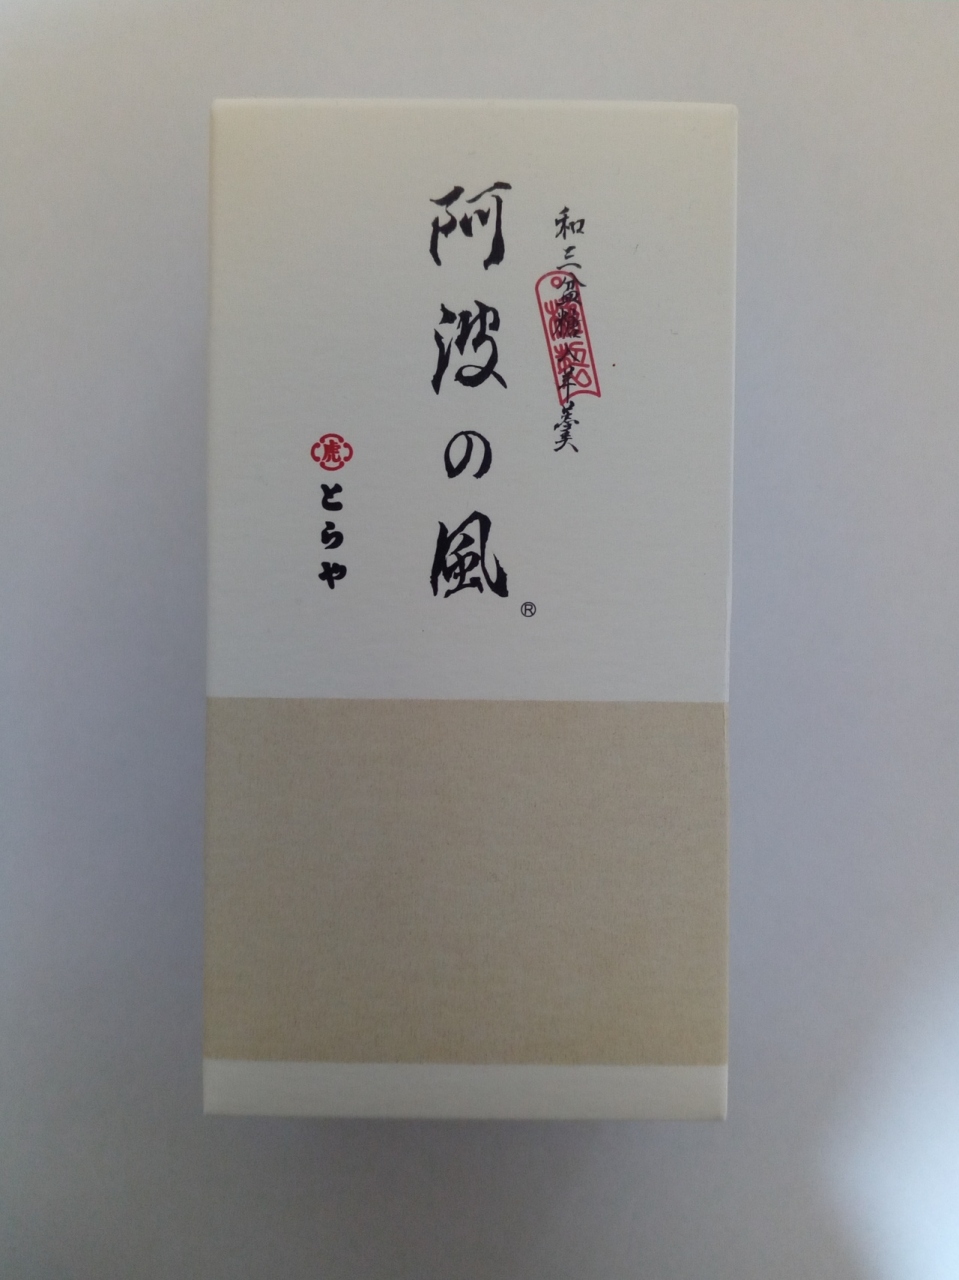 和三盆糖入羊羹
阿波の風®
虎
とらや